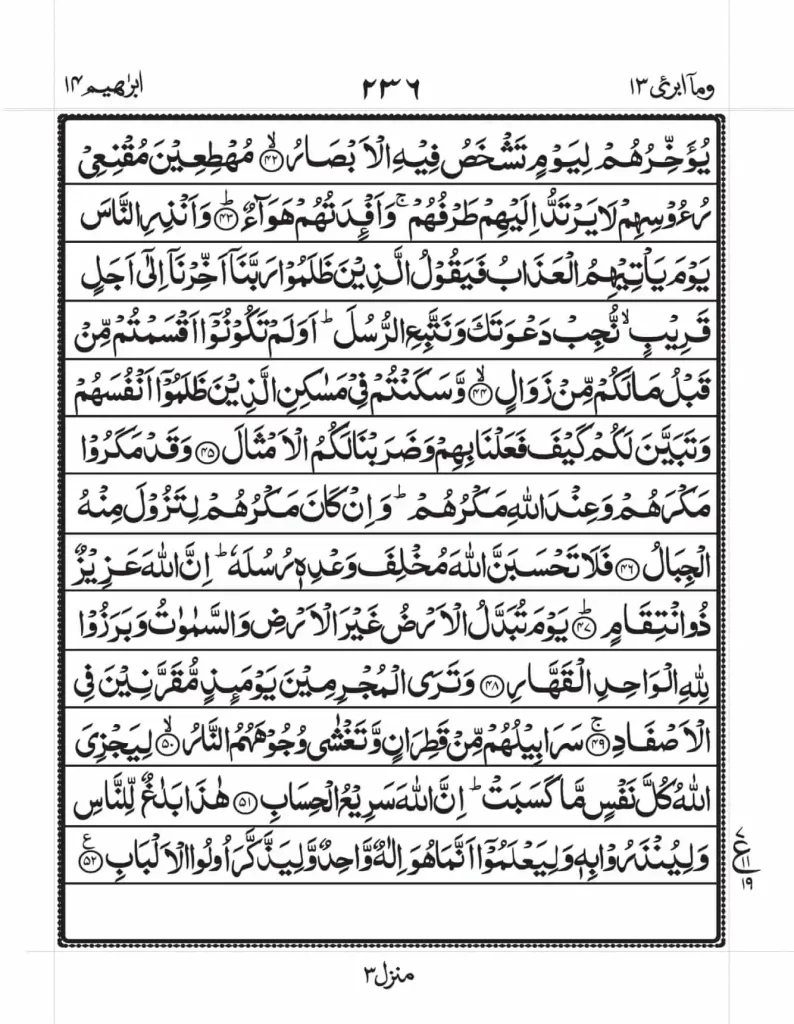 ابرٰهیم ۱۴ ۲۳۶ ومآ ابرئ ۱۳
يُؤَخِّرُهُمْ لِيَوْمٍ تَشْخَصُ فِيْهِ الْاَبْصَارُ ۙ﴿۴۲﴾ مُهْطِعِيْنَ مُقْنِعِيْ
رُءُوْسِهِمْ لَا يَرْتَدُّ اِلَيْهِمْ طَرْفُهُمْ ۚ وَاَفْـِٕدَتُهُمْ هَوَآءٌ ؕ﴿۴۳﴾ وَاَنْذِرِ النَّاسَ
يَوْمَ يَاْتِيْهِمُ الْعَذَابُ فَيَقُوْلُ الَّذِيْنَ ظَلَمُوْا رَبَّنَاۤ اَخِّرْنَاۤ اِلٰۤى اَجَلٍ
قَرِيْبٍ ۙ نُّجِبْ دَعْوَتَكَ وَنَتَّبِعِ الرُّسُلَ ؕ اَوَلَمْ تَكُوْنُوْۤا اَقْسَمْتُمْ مِّنْ
قَبْلُ مَا لَكُمْ مِّنْ زَوَالٍ ۙ﴿۴۴﴾ وَّسَكَنْتُمْ فِيْ مَسٰكِنِ الَّذِيْنَ ظَلَمُوْۤا اَنْفُسَهُمْ
وَتَبَيَّنَ لَكُمْ كَيْفَ فَعَلْنَا بِهِمْ وَضَرَبْنَا لَكُمُ الْاَمْثَالَ ﴿۴۵﴾ وَقَدْ مَكَرُوْا
مَكْرَهُمْ وَعِنْدَ اللّٰهِ مَكْرُهُمْ ؕ وَاِنْ كَانَ مَكْرُهُمْ لِتَزُوْلَ مِنْهُ
الْجِبَالُ ﴿۴۶﴾ فَلَا تَحْسَبَنَّ اللّٰهَ مُخْلِفَ وَعْدِهٖ رُسُلَهٗ ؕ اِنَّ اللّٰهَ عَزِيْزٌ
ذُو انْتِقَامٍ ؕ﴿۴۷﴾ يَوْمَ تُبَدَّلُ الْاَرْضُ غَيْرَ الْاَرْضِ وَالسَّمٰوٰتُ وَبَرَزُوْا
لِلّٰهِ الْوَاحِدِ الْقَهَّارِ ﴿۴۸﴾ وَتَرَى الْمُجْرِمِيْنَ يَوْمَىِٕذٍ مُّقَرَّنِيْنَ فِي
الْاَصْفَادِ ۚ﴿۴۹﴾ سَرَابِيْلُهُمْ مِّنْ قَطِرَانٍ وَّتَغْشٰى وُجُوْهَهُمُ النَّارُ ۙ﴿۵۰﴾ لِيَجْزِيَ
اللّٰهُ كُلَّ نَفْسٍ مَّا كَسَبَتْ ؕ اِنَّ اللّٰهَ سَرِيْعُ الْحِسَابِ ﴿۵۱﴾ هٰذَا بَلٰغٌ لِّلنَّاسِ
وَلِيُنْذَرُوْا بِهٖ وَلِيَعْلَمُوْۤا اَنَّمَا هُوَ اِلٰهٌ وَّاحِدٌ وَّلِيَذَّكَّرَ اُولُوا الْاَلْبَابِ ﴿۵۲﴾ ع
۷ ع ۱۱ ۱۹
منزل ۳